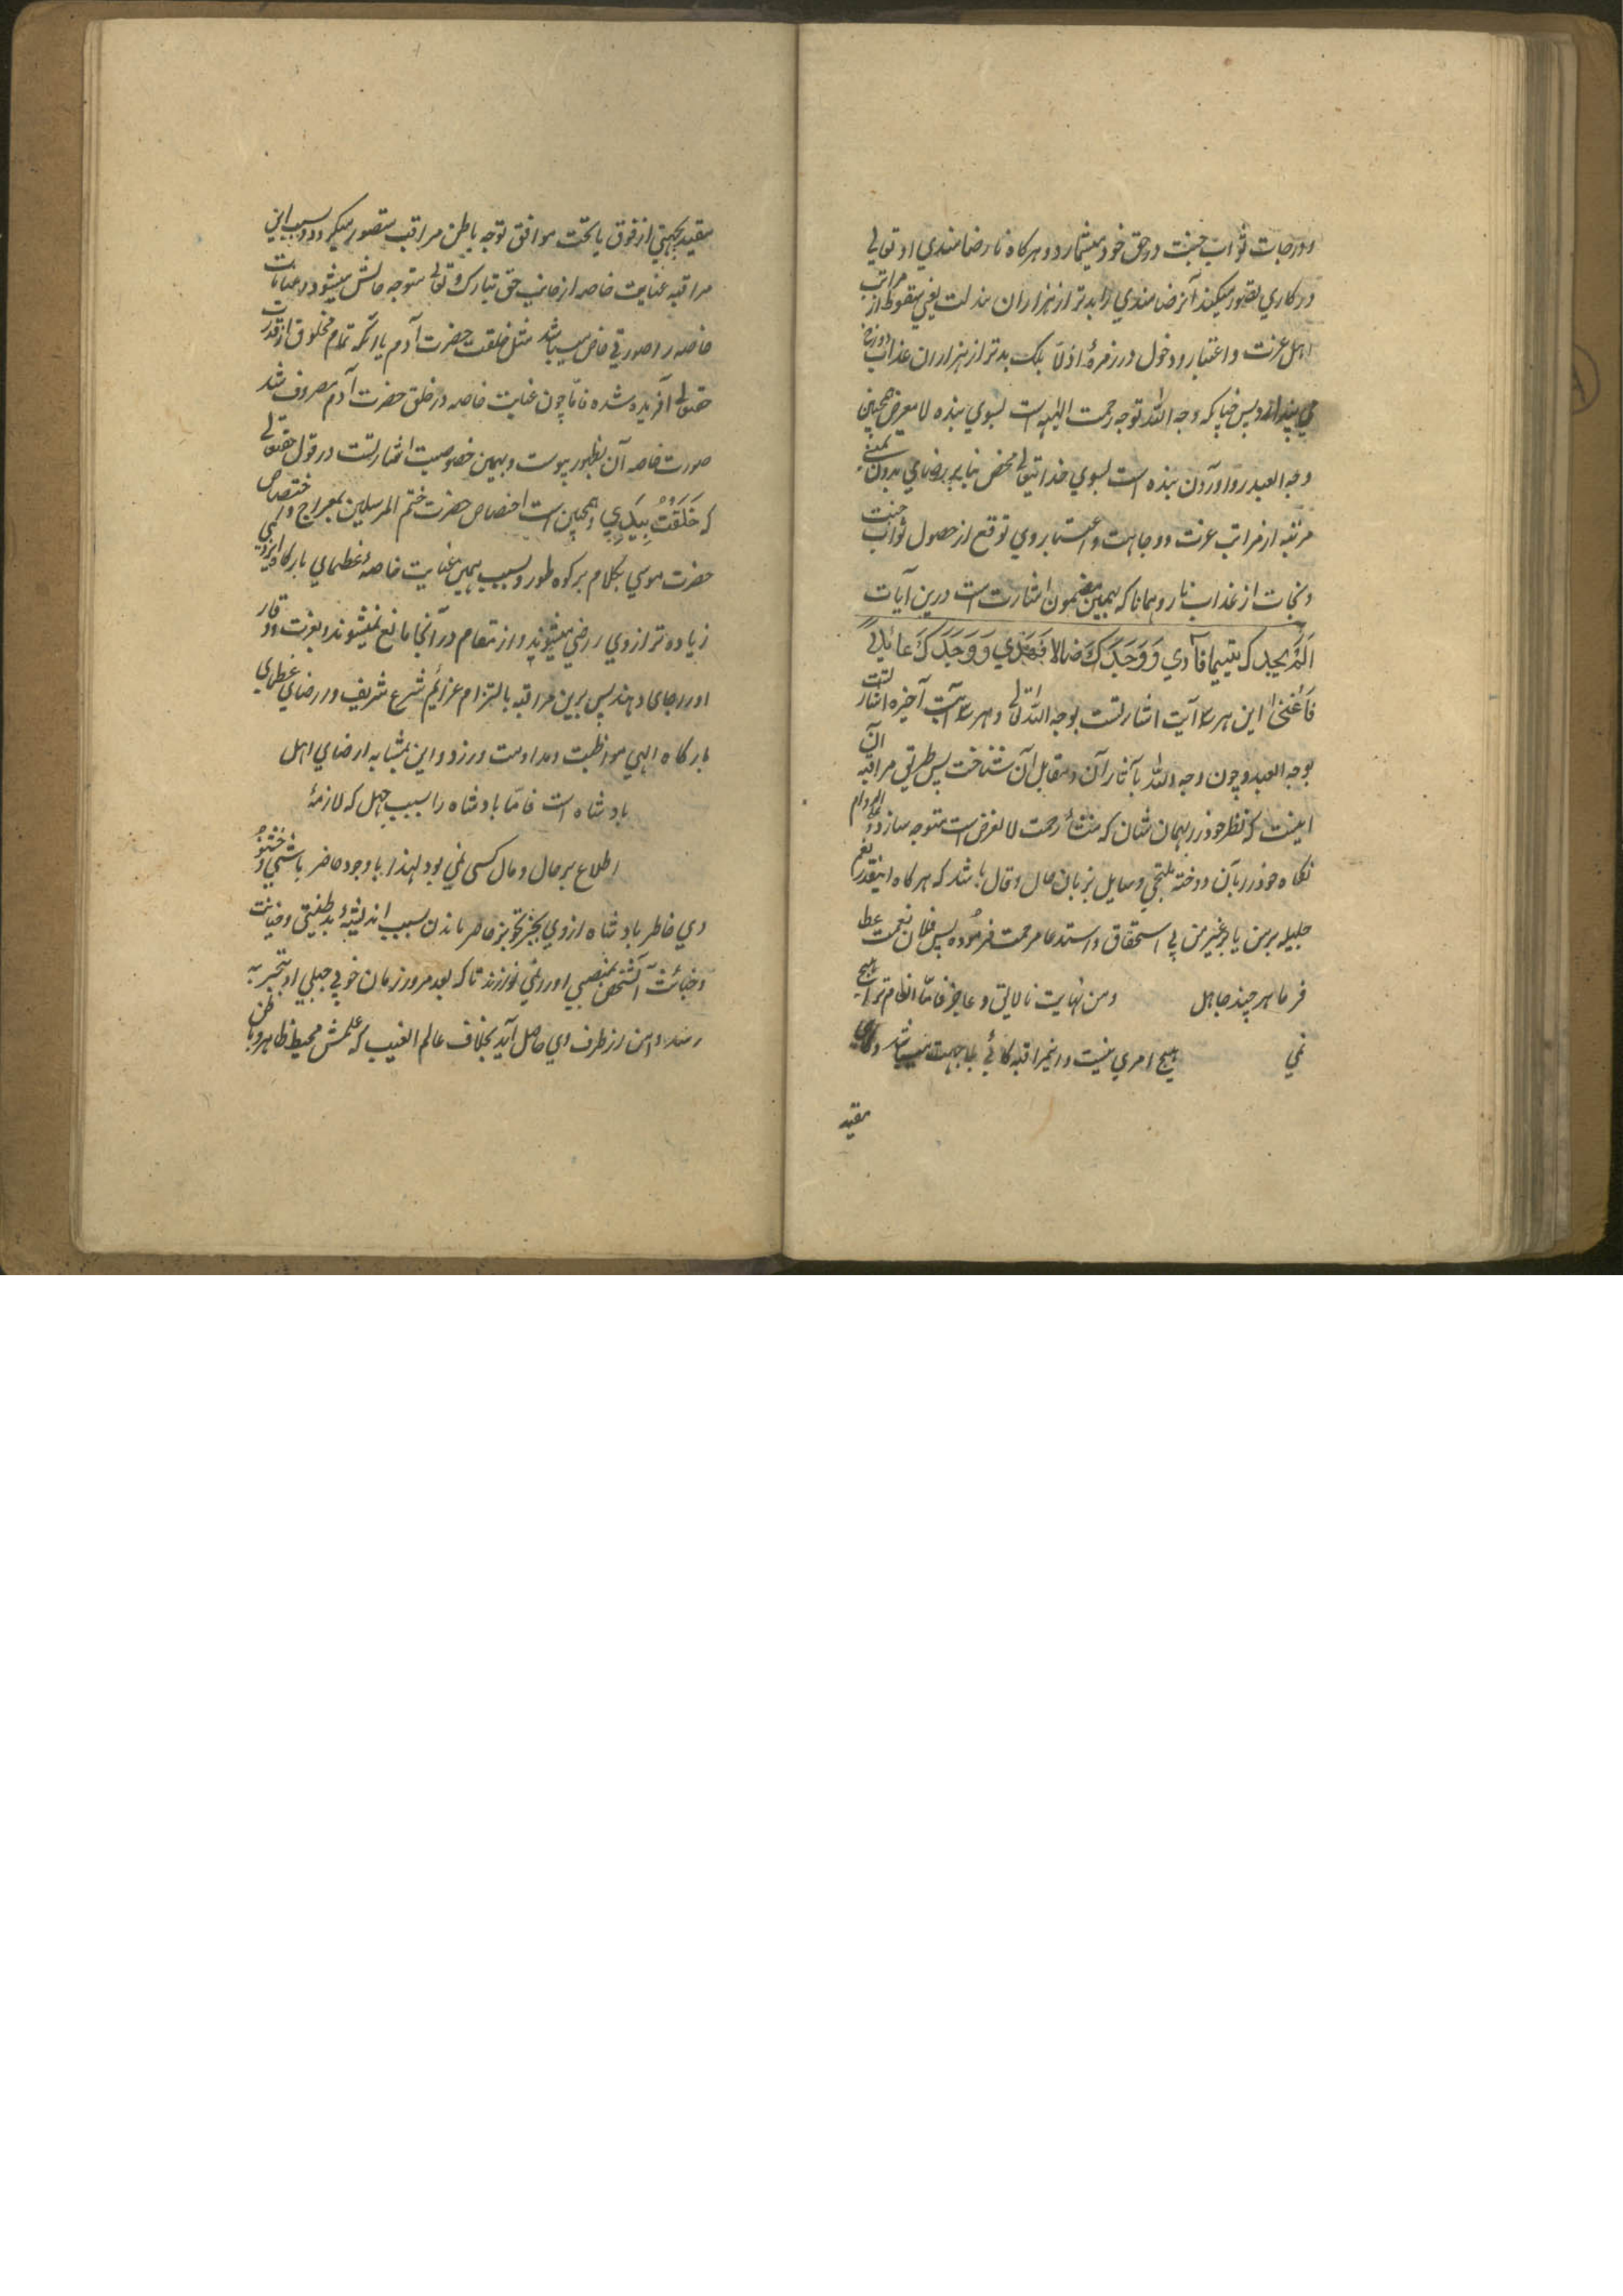 ودرجات ثواب جنت در حق خود میشمارد و هرکاه نا رضامندي او تعالی
در کاري تصور میکند آنرضامندي را بدتر از هزاران مذلت یعني سقوط از مراتب
اهل عزت و اعتبار و دخول در زمرهٔ اذلّا بلک بدتر از هزاران عذاب دوزخ
مي پندارد پس چنانکه وجه الله توجه رحمت الٰهیه است بسوي بنده لا معرض همچنین
وجه العبد رو آوردن بنده است بسوي خدایتعالی محض بنا بر رضامي بدون تمنی
مرتبه از مراتب عزت و وجاهت و اعتبار وي توقع از حصول ثواب جنت
و نجات از عذاب نار و همانا که بهمین مضمون اشارت است درین آیات
اَلَمْ یجدک یتیما فآوي وَوَجَدَکَ ضالا فَهَدي وَوَجَدَکَ عائلا
فَاَغنی این هر سه آیت اشارتست بوجه الله تعالی و هر سه آیت آخیره اشارتست
بوجه العبد و چون وجه الله بآثار آن و مقابل آن شناخت پس طریق مراقبه آن
اینست که نظر خود را بهمان شان که منشأ رحمت لا لغرض است متوجه سازد و علی الدوام
نکاه خود را بآن دوخته ملتجي و سایل بزبان حال و قال باشد که هرکاه اینقدر نعم
جلیله بر من یا بر غیر من بي استحقاق و استدعا مرحمت فرموده پس فلان نعمت عطا
فرما هر چند جاهل ومن نهایت نالایق و عاجز فامّا انعام ترا هیچ
نمي هیچ امري نیست و اینمراقبه کاهي بلا جهت میباشد و کاهي
مقید
مقید بجهتي از فوق یا تحت موافق توجه باطن مراقب متصور میکردد و بسبب این
مراقبه عنایت خاصه از جانب حق تبارک و تعالی متوجه حالش میشود و عنایات
خاصه را صورتي خاص میباشد مثل خلقت حضرت آدم باآنکه تمام مخلوق از قدرت
حقتعالی آفریده شده فامّا چون عنایت خاصه در خلق حضرت آدم مصروف شد
صورت خاصه آن بظهور پیوست و بهمین خصوصیت اشارتست در قول حقتعالی
که خَلَقْتُ بِیَدَيَّ و همچنین است اختصاص حضرت ختم المرسلین بمعراج و اختصاص
حضرت موسي بکلام بر کوه طور و بسبب همین عنایت خاصهٔ عظماي بارکاه ایزدي
زیاده تر از وي راضي میشوند و از مقام در آنجا مانع نمیشوند و بعزت و وقار
او را جاي دهند پس برین مراقبه بالتزام عزائم شرع شریف و رضاي عظماي
بارکاه الهي مواظبت و مداومت ورزد و این بمشابه ارضاي اهل
بادشاه است فامّا بادشاه را بسبب جهل که لازمهٔ
اطلاع بر حال و مآل کسی نمي بود لهذا با وجود حاضر باشي و خشنو
دي خاطر بادشاه از وي بجز تجویز حاضر ماندن بسبب اندیشهٔ بد طینتی و خیانت
و خباثت آنشخص بمنصبي او را نمي نوازند تا که بعد مرور زمان خوبي جبلي او بتجربه
رسد و امن از طرف وي حاصل آید بخلاف عالم الغیب که علمش محیط ظاهر و باطن